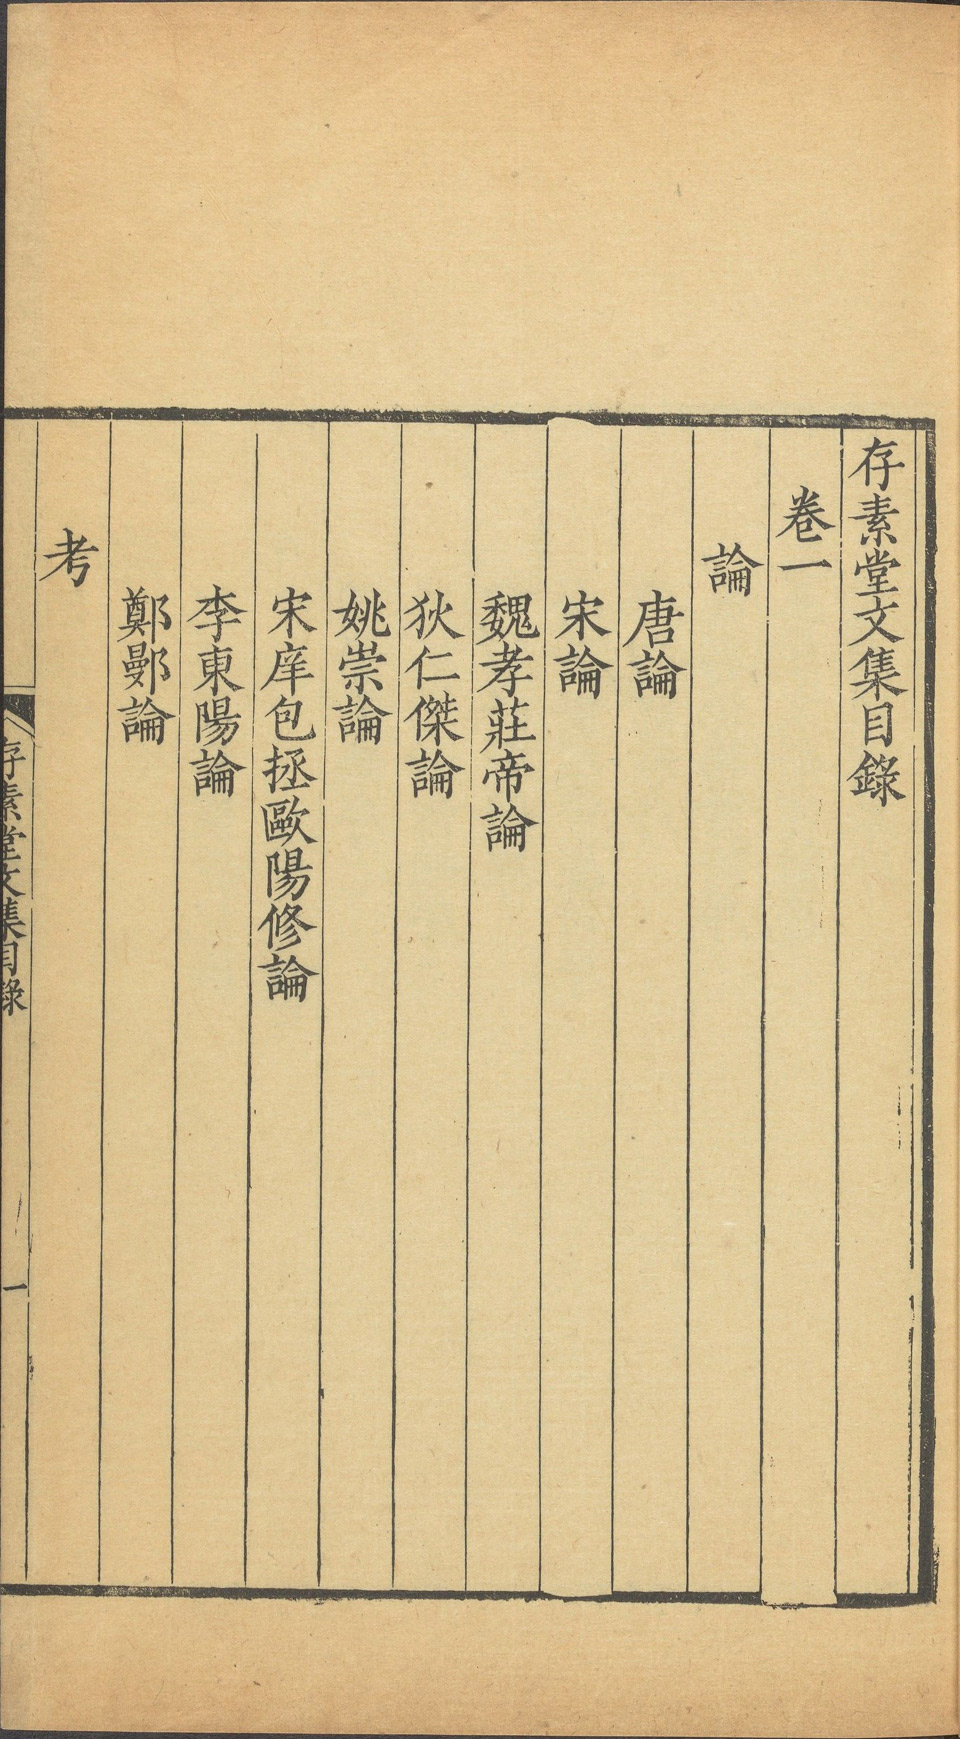 存素堂文集目錄
卷一
論
唐論
宋論
魏孝莊帝論
狄仁傑論
姚崇論
宋庠包拯歐陽修論
李東陽論
鄭鄤論
考
存素堂文集目錄
一